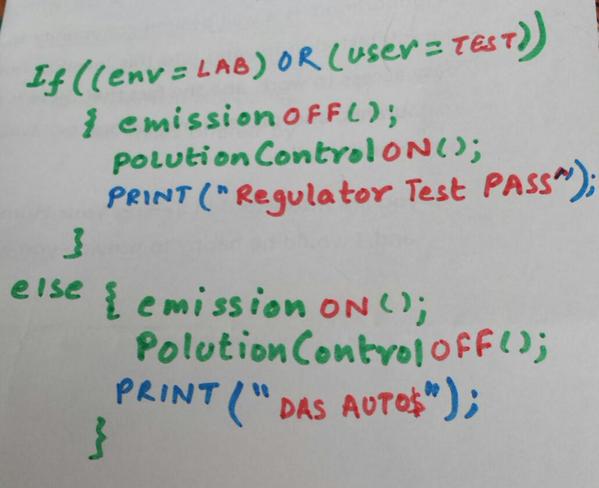 If((env = LAB) OR (user = TEST))
{ emission OFF();
polutionControl ON();
PRINT("Regulator Test PASS");
}
else { emission ON();
PolutionControl OFF();
PRINT("DAS AUTO$");
}